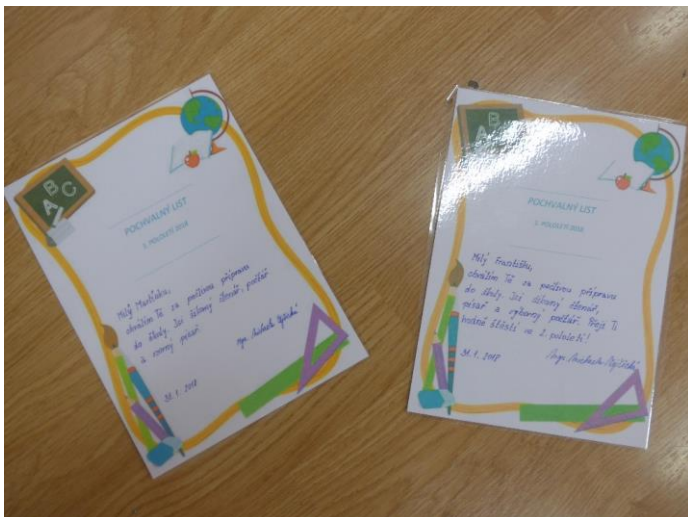 B
A C
POCHVALNÝ LIST
1. POLOLETÍ 2018
Milý Martínku,
chválím Tě za poctivou přípravu
do školy. Jsi úžasný čtenář, počtář
a vzorný písař.
Mgr. Michaela
31. 1. 2018
B
A
POCHVALNÝ LIST
1. POLOLETÍ 2018
Milý Františku,
chválím Tě za poctivou přípravu
do školy. Jsi úžasný čtenář,
písař a výborný počtář. Přeji Ti
hodně štěstí ve 2. pololetí!
31. 1. 2018
Mgr. Michaela